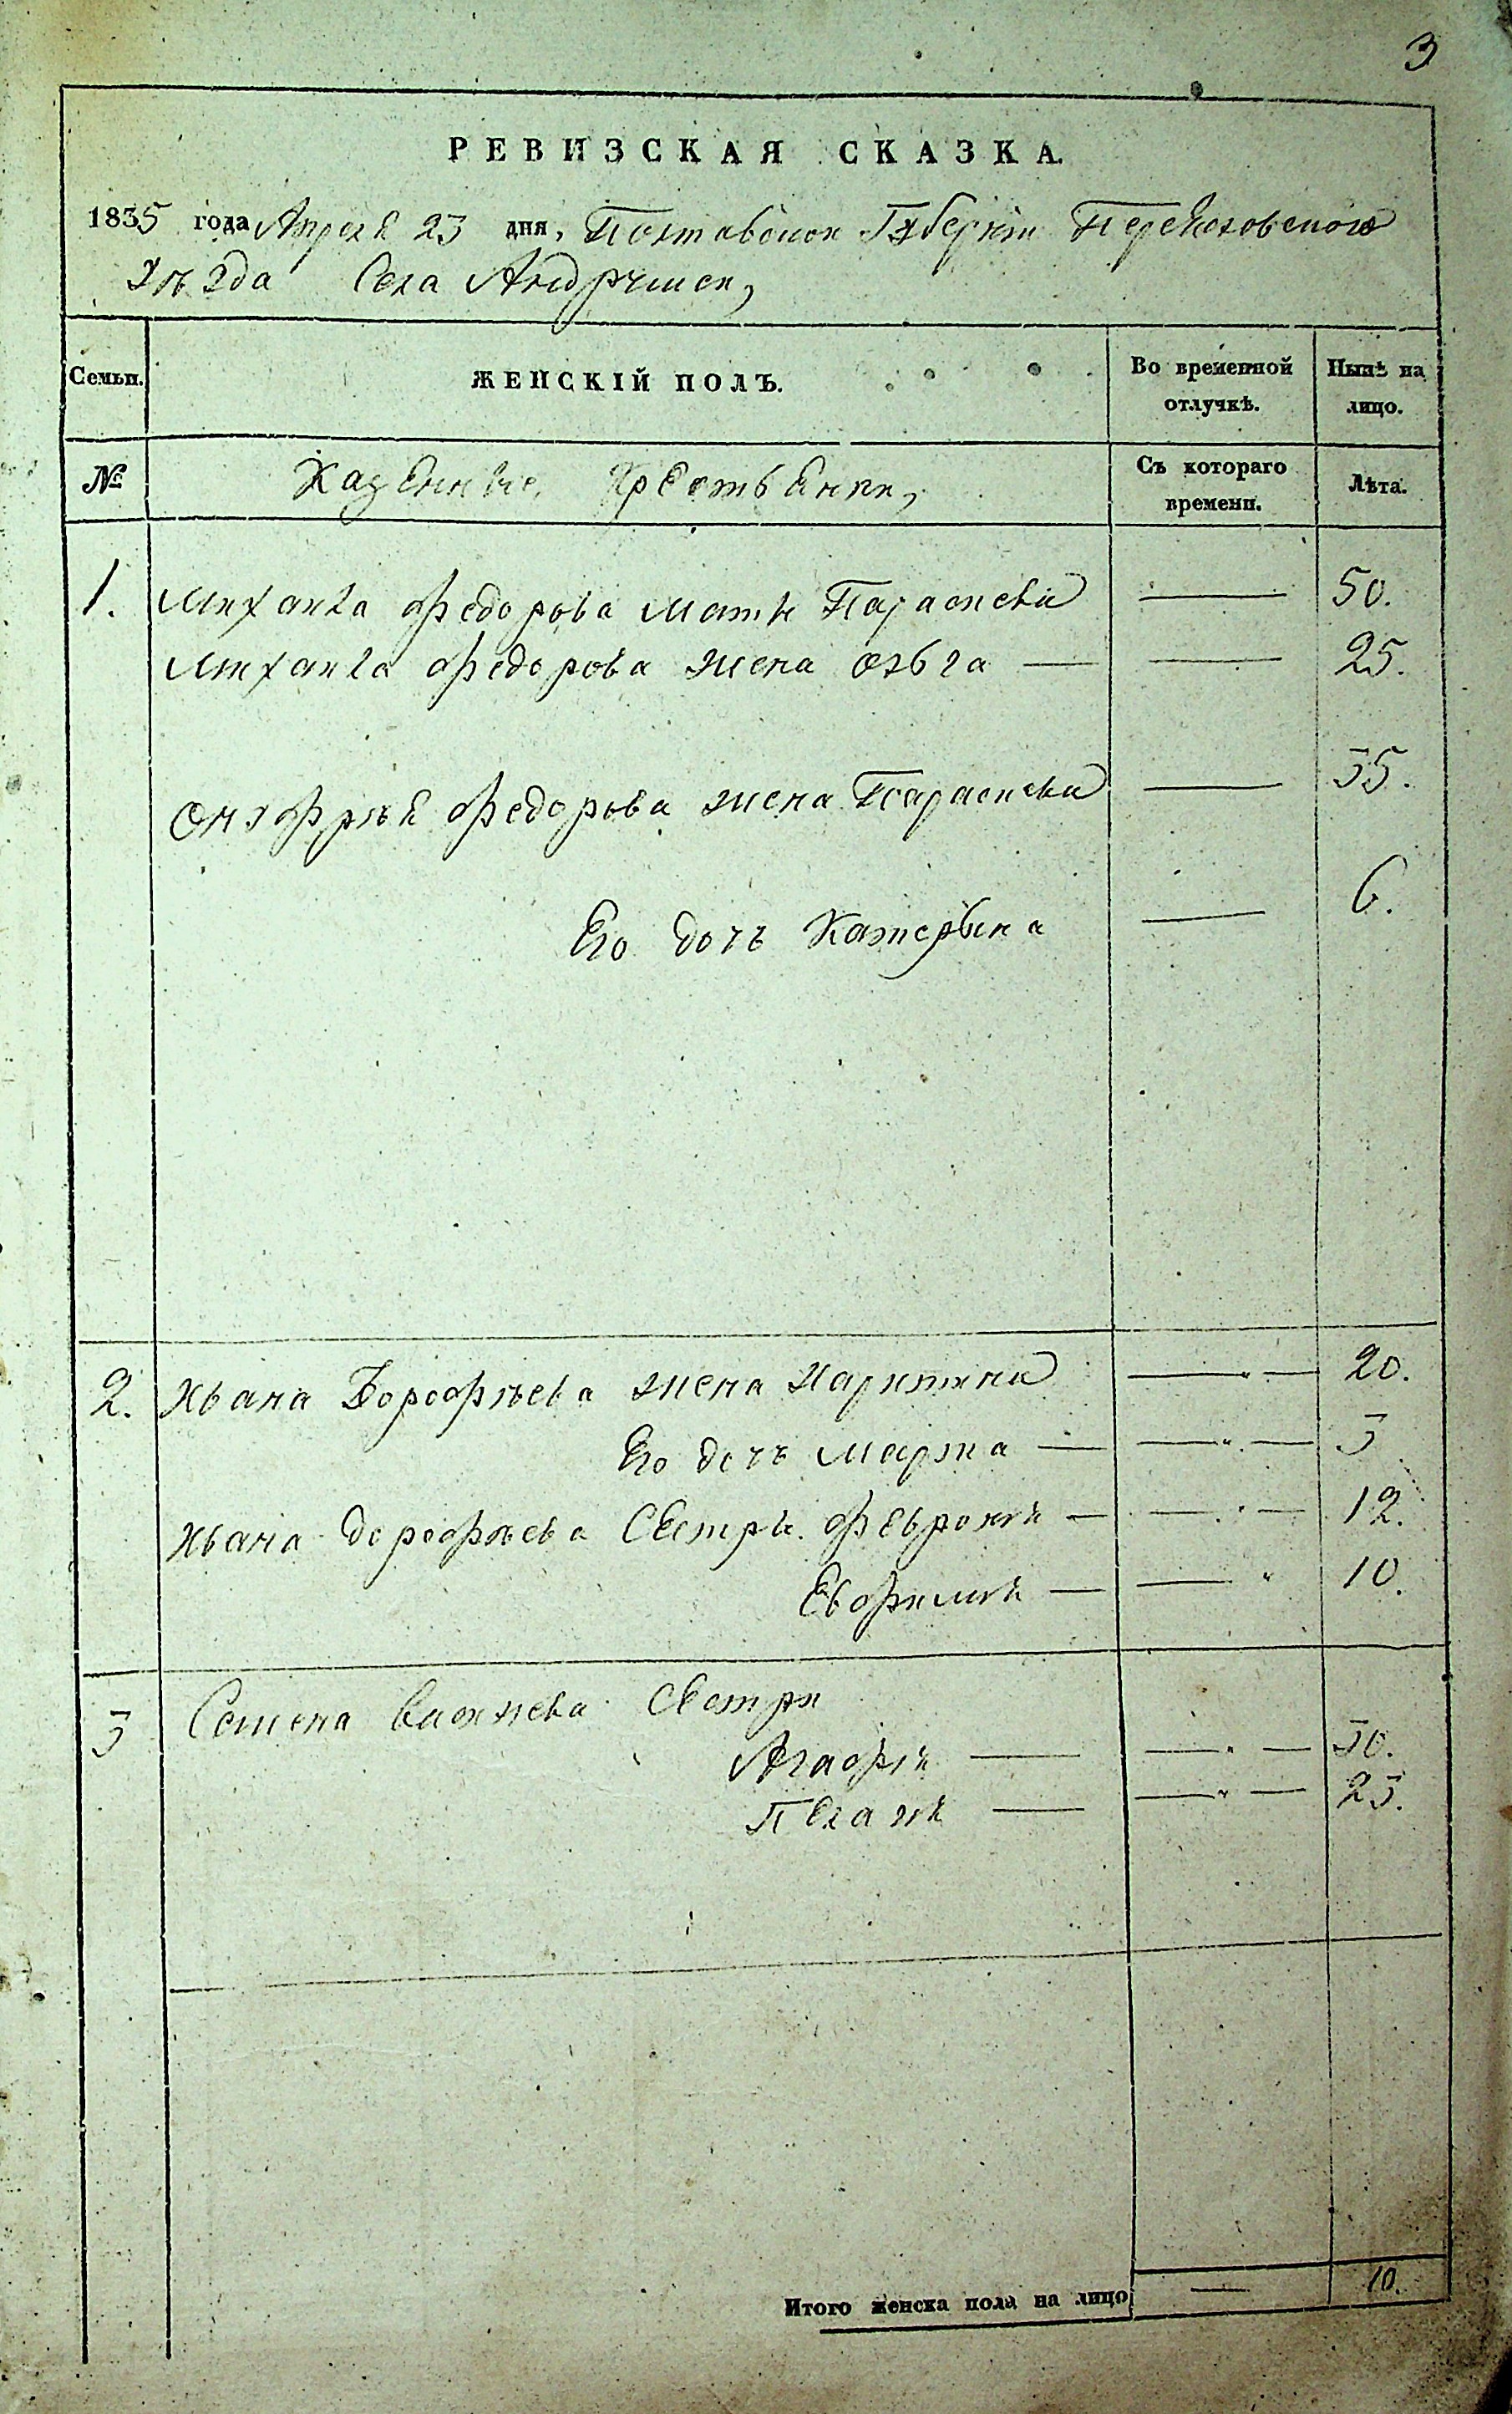 3
РЕВИЗСКАЯ СКАЗКА.
1835 года Апреля 23 дня, Полтавской Губернии Переяславского
Уѣзда Села Андрушек,
Семьи. ЖЕНСКІЙ ПОЛЪ. Во временной отлучкѣ. Нынѣ на лицо.
№ Казенные Крестьянки, Съ котораго времени. Лѣта.
1. Михаила Федорова мать Параскева — 50.
Михаила Федорова жена Ольга — — 25.
Онуфрія Федорова жена Параскева — 35.
Его дочъ Катерина — 6.
2. Ивана Дорофѣева жена Харитина — 20.
Его дочъ Марфа — — 3
Ивана Дорофѣева Сестры Феврония — — 12.
Евфимія — — 10.
3 Семена Сестры
Агафія — — 30.
Пелагія — — 23.
Итого женска пола на лицо — 10.